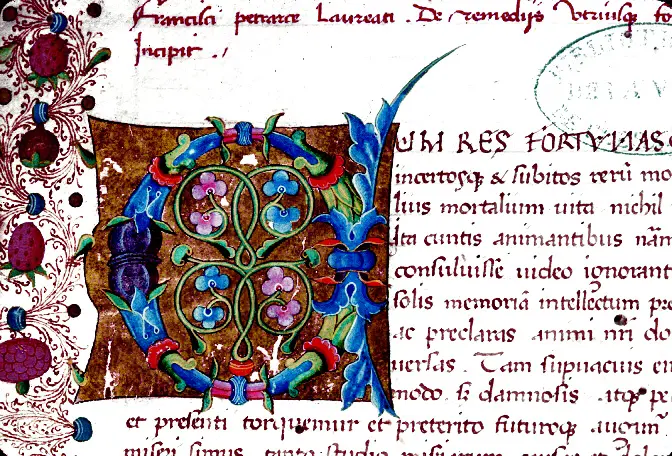 Francisci petrarce Laureati. De remedijs Utriusq fo
Incipit .,
CUM RES FORTUNASQ
incertosq & subitos rerū mo
lius mortalium uita nihil
Ita cuntis animantibus nām
consuluisse uideo ignorant
solis memoriā intellectum pr
ac preclaras animi nri do
uersas. Tam supuacuis en
modo. sz damnosis atq pe
et presenti torquemur et preterito futuroq
miseri simus tanto studio